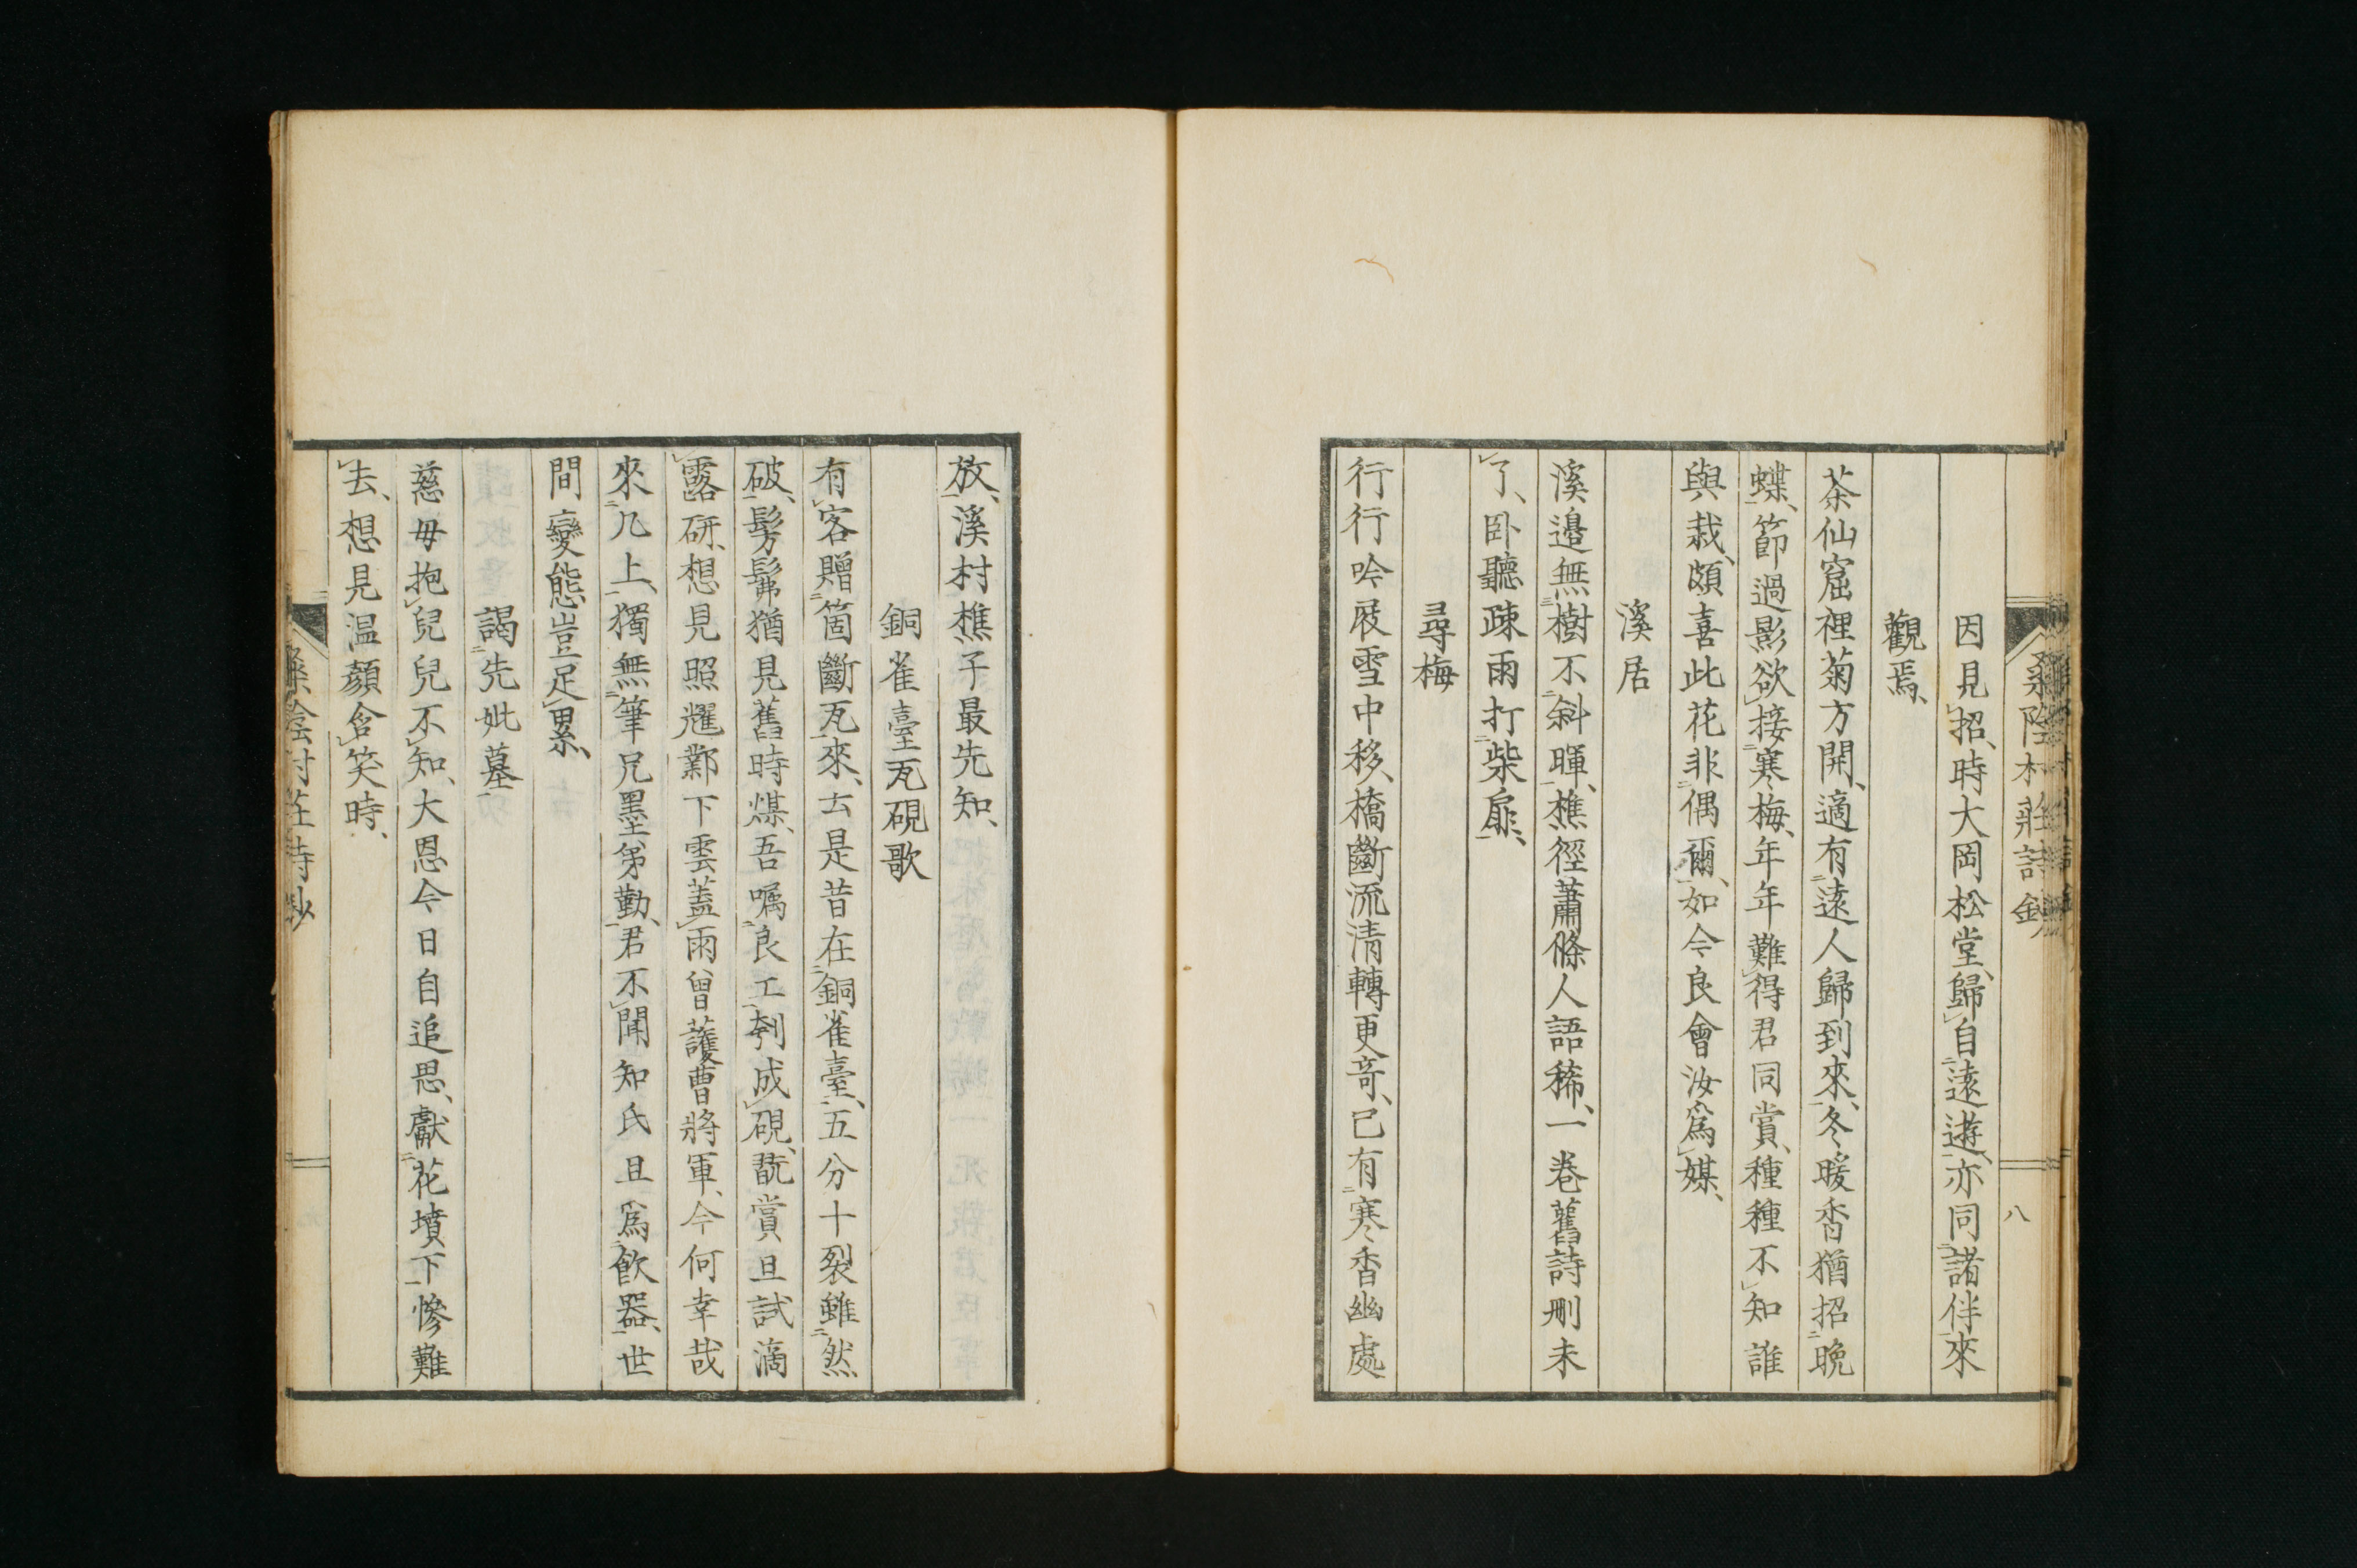 桑陰村莊詩鈔
八
因見招、時大岡松堂、歸自遠遊、亦同諸伴來
觀焉、
茶仙窟裡菊方開、適有遠人歸到來、冬暖香猶招晚
蝶、節過影欲接寒梅、年年難得君同賞、種種不知誰
與栽、頗喜此花非偶爾、如今良會汝爲媒、
溪居
溪邉無樹不斜暉、樵徑蕭條人語稀、一卷舊詩刪未
了、卧聽疎雨打柴扉、
尋梅
行行吟屐雪中移、橋斷流清轉更竒、已有寒香幽處
放、溪村樵子最先知、
銅雀臺瓦硯歌
有客贈箇斷瓦來、云是昔在銅雀臺、五分十裂雖然
破、髣髴猶見舊時煤、吾囑良工刳成硯、翫賞且試滴
露研、想見照耀鄴下雲、蓋雨曾護曹將軍、今何幸哉
來几上、獨無筆兄墨弟勤、君不聞知氏且爲飲器、世
間變態豈足累、
謁先妣墓
慈毋抱兒兒不知、大恩今日自追思、獻花墳下慘難
去、想見温顏含笑時、
桑陰村莊詩鈔